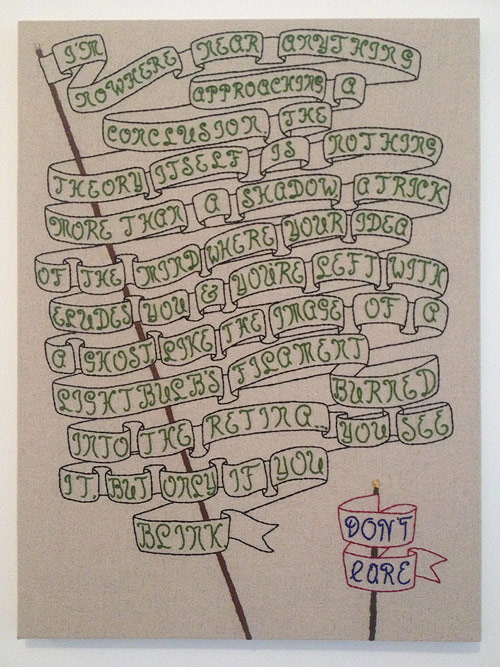 I'M
NOWHERE NEAR ANYTHING
APPROACHING A
CONCLUSION. THE
THEORY ITSELF IS NOTHING
MORE THAN A SHADOW A TRICK
OF THE MIND WHERE YOUR IDEA
ELUDES YOU & YOU'RE LEFT WITH
A GHOST LIKE THE IMAGE OF A
LIGHTBULB'S FILAMENT
BURNED
INTO THE RETINA. YOU SEE
IT, BUT ONLY IF YOU
BLINK
DON'T
CARE